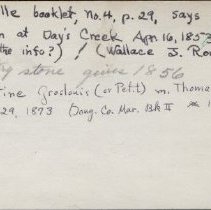 lle booklet, No. 4, p. 29, says
n at Day's Creek Apr. 16, 1853
the info?) ! (Wallace J. Ro
stone gives 1856
ine Groslouis (or Petit) m. Thoma
29, 1873 Doug. Co. Mar. Bk II